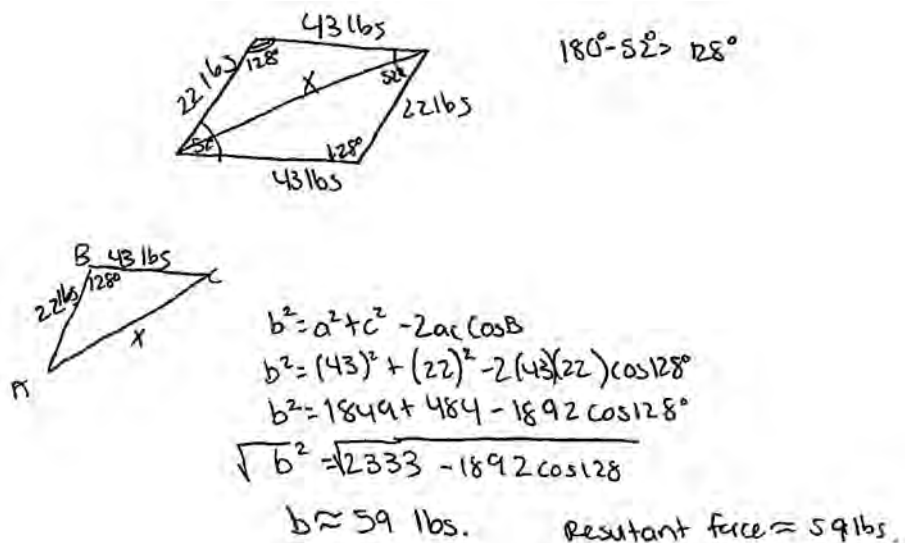 43 lbs
180°-52°> 128°
22 lbs 128° 52° X 22 lbs
52° 128°
43 lbs
B 43 lbs
22 lbs 128° C
X
A
b²=a²+c²-2ac CosB
b²=(43)²+(22)²-2(43)(22)cos128°
b²=1849+484-1892 cos128°
√b²=√2333-1892cos128
b≈59 lbs. Resutant force≈59lbs.